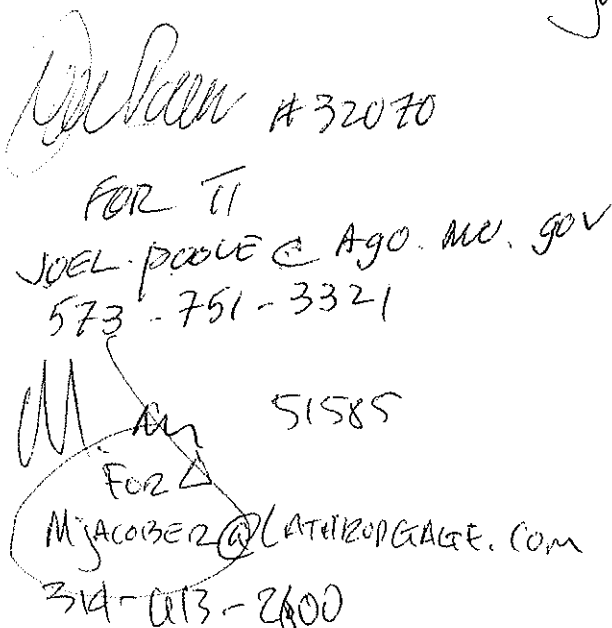 #32070
FOR π
JOEL.POOLE@Ago.mo.gov
573-751-3321
51585
FOR Δ
MJACOBER@LATHROPGAGE.COM
314-613-2800